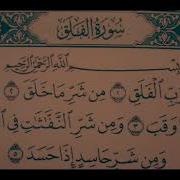 سُورَةُ الفَلَقِ
بِسْمِ اللَّهِ الرَّحْمَٰنِ الرَّحِيمِ
بِّ الْفَلَقِ ١ مِن شَرِّ مَا خَلَقَ ٢
وَقَبَ ٣ وَمِن شَرِّ النَّفَّٰثَٰتِ فِي
وَمِن شَرِّ حَاسِدٍ إِذَا حَسَدَ ٥